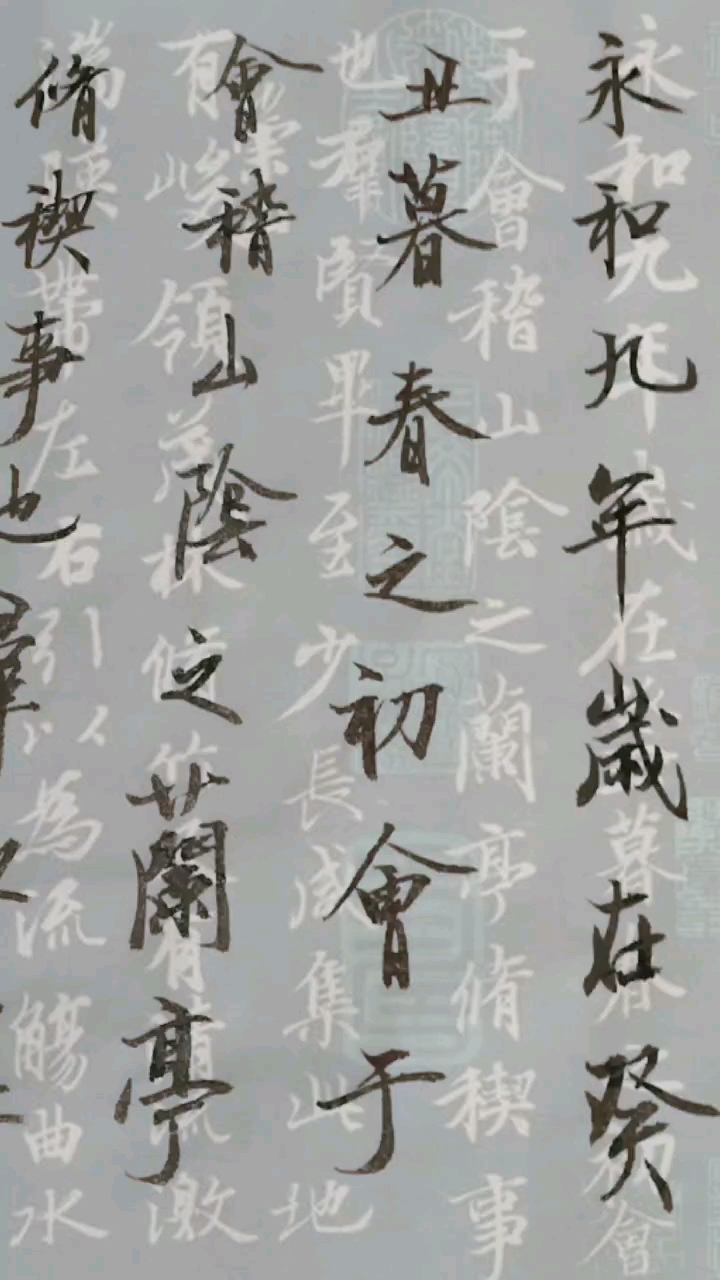 永和九年歲在癸
丑暮春之初會于
會稽山陰之蘭亭
脩禊事也羣
永和九年歲在
暮春 初會
于會稽山陰之蘭亭脩禊事
也羣賢畢至少長咸集此地
有崇峻領茂林脩竹 清流激
湍暎帶左右引以為流觴曲水